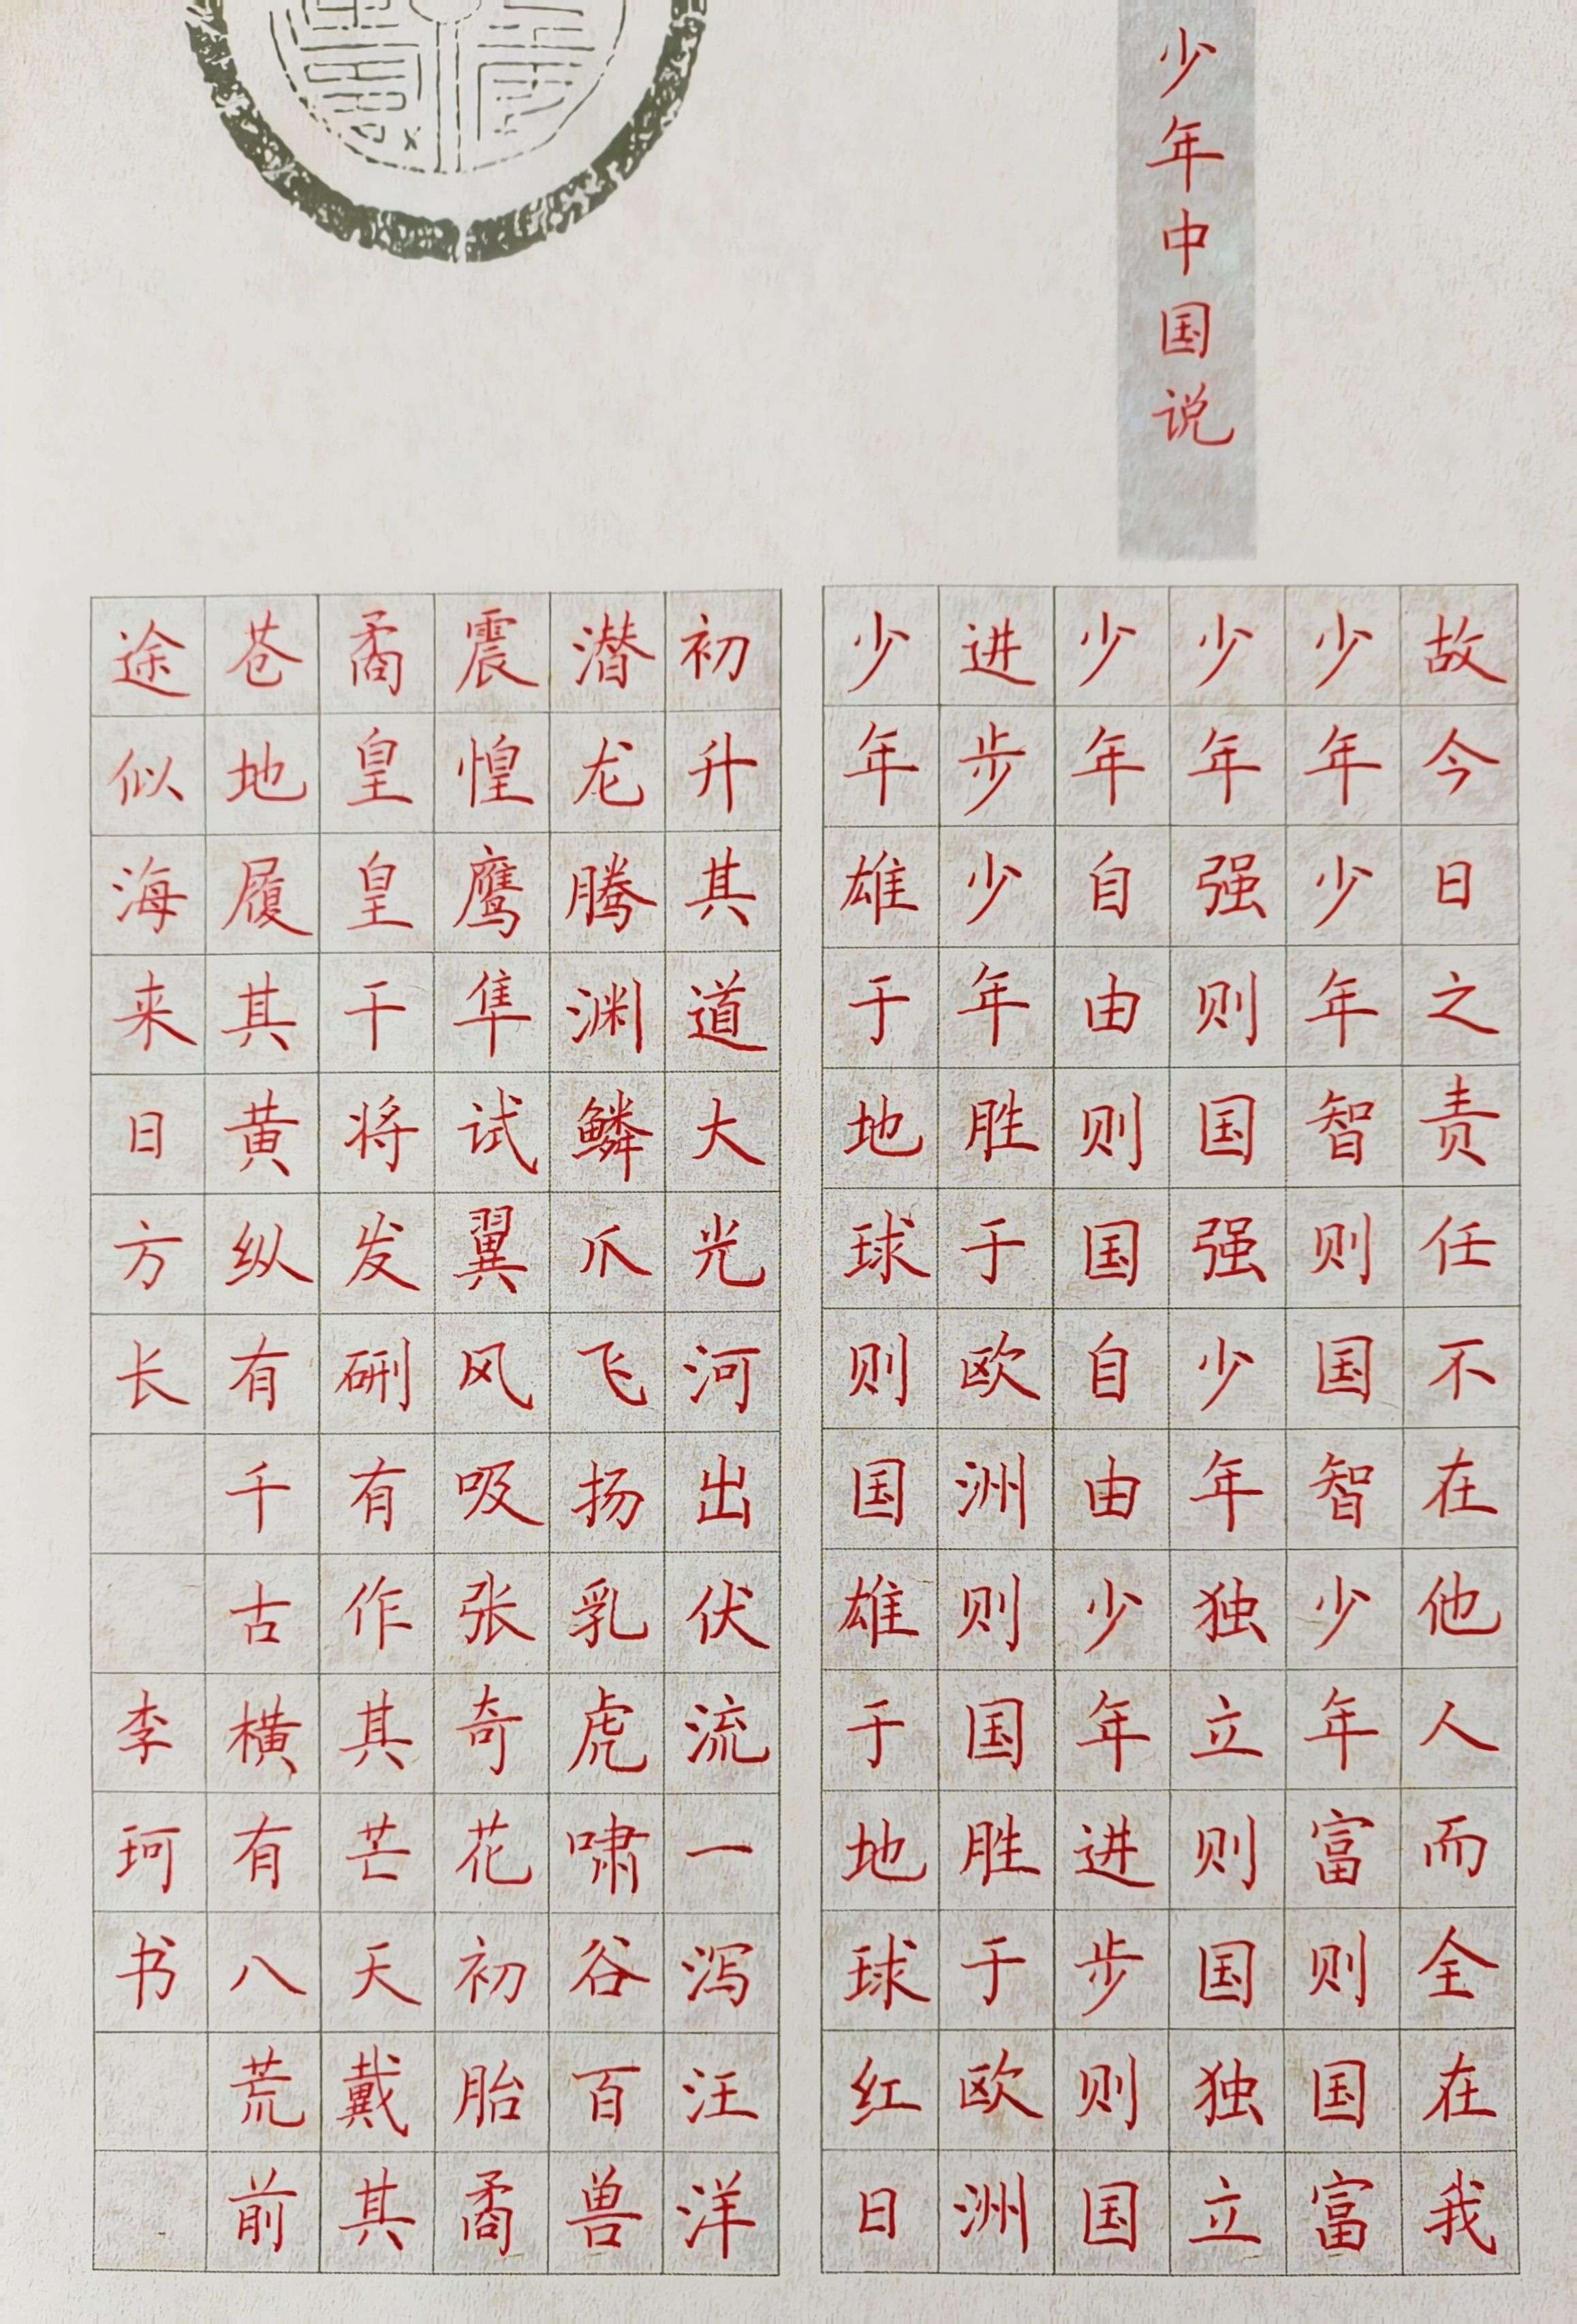 少年中国说
故今日之责任不在他人而全在我
少年少年智则国智少年富则国富
少年强则国强少年独立则国独立
少年自由则国自由少年进步则国
进步少年胜于欧洲则国胜于欧洲
少年雄于地球则国雄于地球红日
初升其道大光河出伏流一泻汪洋
潜龙腾渊鳞爪飞扬乳虎啸谷百兽
震惶鹰隼试翼风吸张奇花初胎矞
矞皇皇干将发硎有作其芒天戴其
苍地履其黄纵有千古横有八荒前
途似海来日方长 李珂书